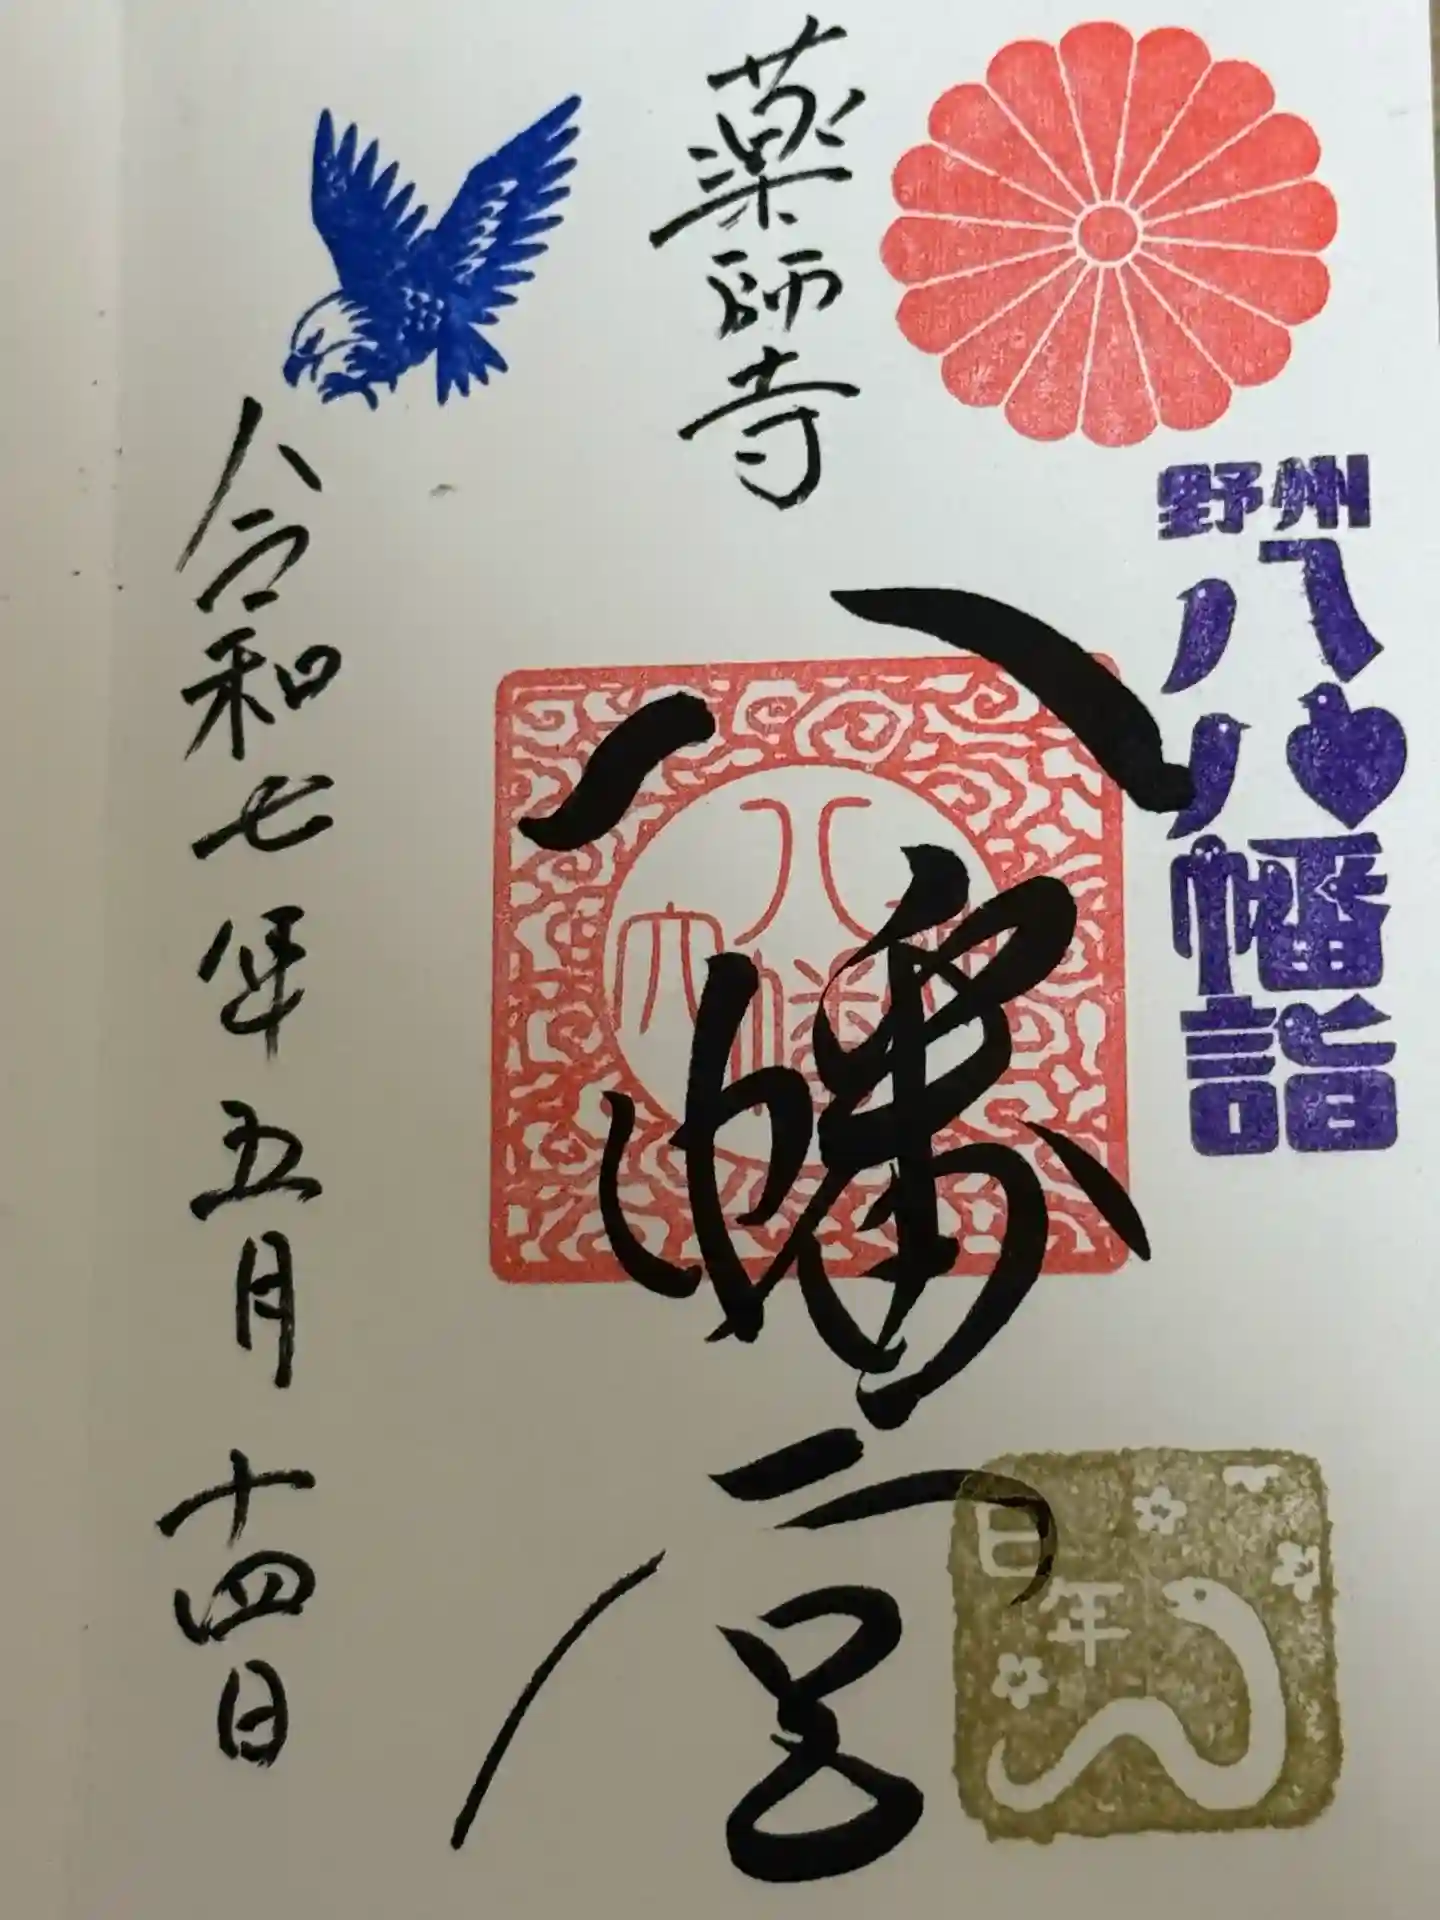 野州
八八八幡詣
薬師寺
八幡宮
八幡
巳年
令和七年五月十四日